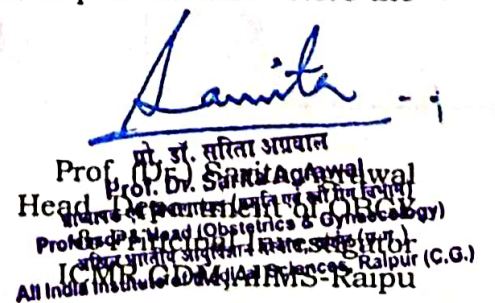 Sarita
प्रो. डॉ. सरिता अग्रवाल
Prof. (Dr.) Sarita Agrawal
Prof. Dr. Sarita Agrawal
Head, Department of OBGY
Professor & Head (Obstetrics & Gynaecology)
& Principal Investigator
ICMR GDM AIIMS-Raipu
All India Institute of Medical Sciences, Raipur (C.G.)